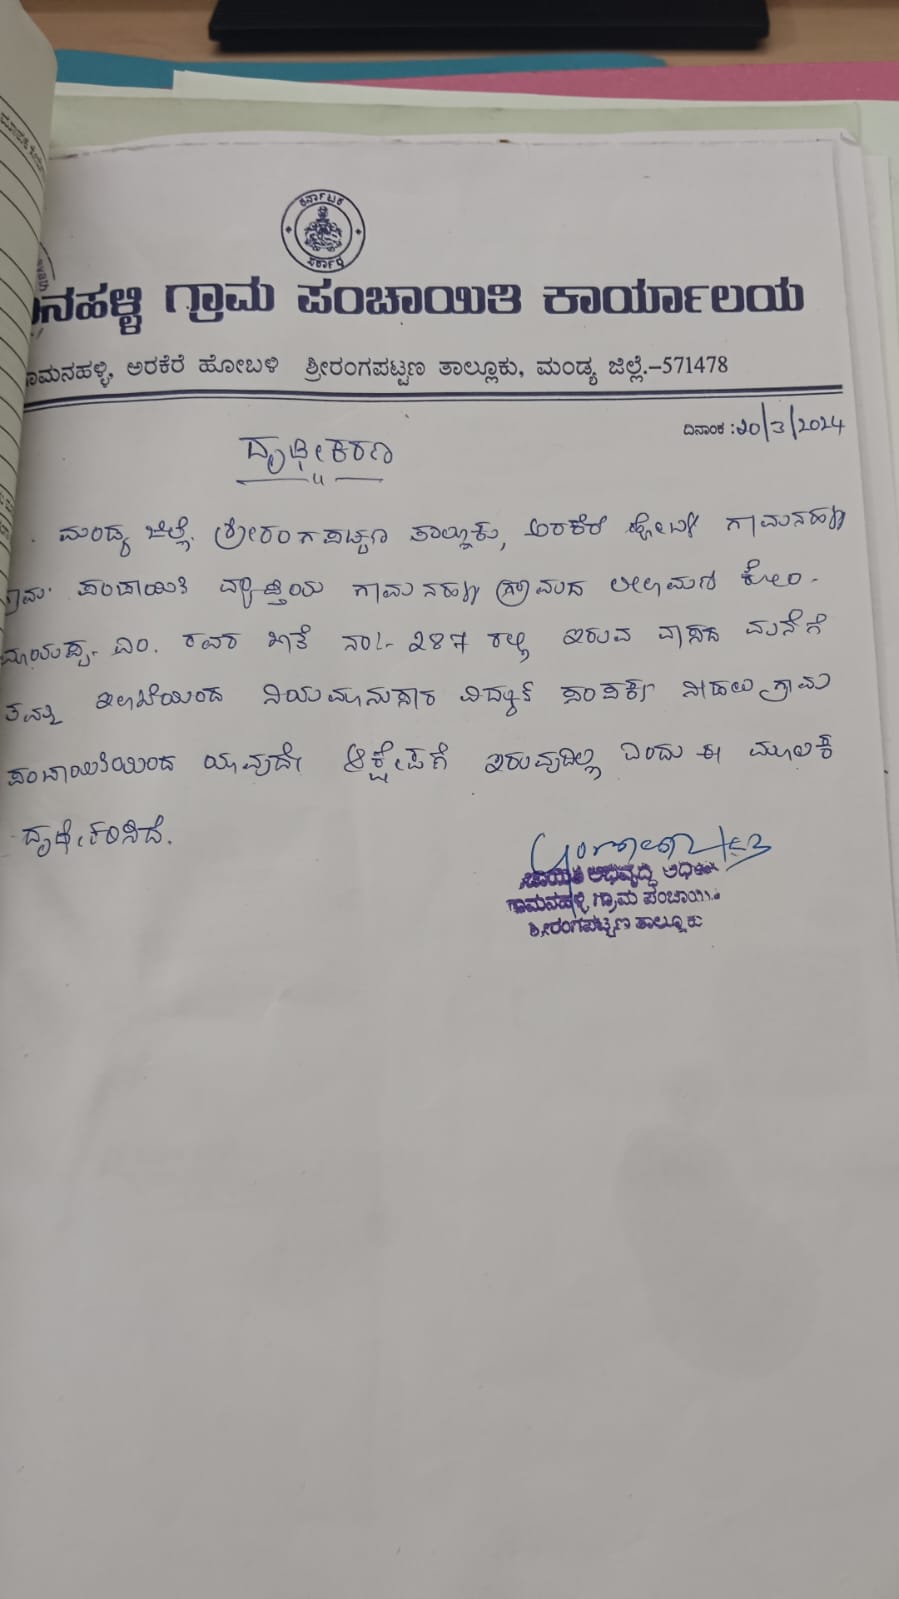 ಕರ್ನಾಟಕ
ಸರ್ಕಾರ
ನಹಳ್ಳಿ ಗ್ರಾಮ ಪಂಚಾಯಿತಿ ಕಾರ್ಯಾಲಯ
ಗಾಮನಹಳ್ಳಿ, ಅರಕೆರೆ ಹೋಬಳಿ ಶ್ರೀರಂಗಪಟ್ಟಣ ತಾಲ್ಲೂಕು, ಮಂಡ್ಯ ಜಿಲ್ಲೆ.-571478
ದಿನಾಂಕ : 20/3/2024
ದೃಢೀಕರಣ
ಮಂಡ್ಯ ಜಿಲ್ಲೆ, ಶ್ರೀರಂಗಪಟ್ಟಣ ತಾಲ್ಲೂಕು, ಅರಕೆರೆ ಹೋಬಳಿ ಗಾಮನಹಳ್ಳಿ
ಗ್ರಾಮ ಪಂಚಾಯಿತಿ ವ್ಯಾಪ್ತಿಯ ಗಾಮನಹಳ್ಳಿ ಗ್ರಾಮದ ಕೋಂ.
ಎಂ. ರವರ ಖಾತೆ ನಂ:- 287 ರಲ್ಲಿ ಇರುವ ವಾಸದ ಮನೆಗೆ
ತಮ್ಮ ಇಲಾಖೆಯಿಂದ ನಿಯಮಾನುಸಾರ ವಿದ್ಯುತ್ ಸಂಪರ್ಕ ನೀಡಲು ಗ್ರಾಮ
ಪಂಚಾಯಿತಿಯಿಂದ ಯಾವುದೇ ಆಕ್ಷೇಪಣೆ ಇರುವುದಿಲ್ಲ ಎಂದು ಈ ಮೂಲಕ
ದೃಢೀಕರಿಸಿದೆ.
ಅಭಿವೃದ್ಧಿ
ಗಾಮನಹಳ್ಳಿ ಗ್ರಾಮ ಪಂಚಾಯಿತಿ
ಶ್ರೀರಂಗಪಟ್ಟಣ ತಾಲ್ಲೂಕು